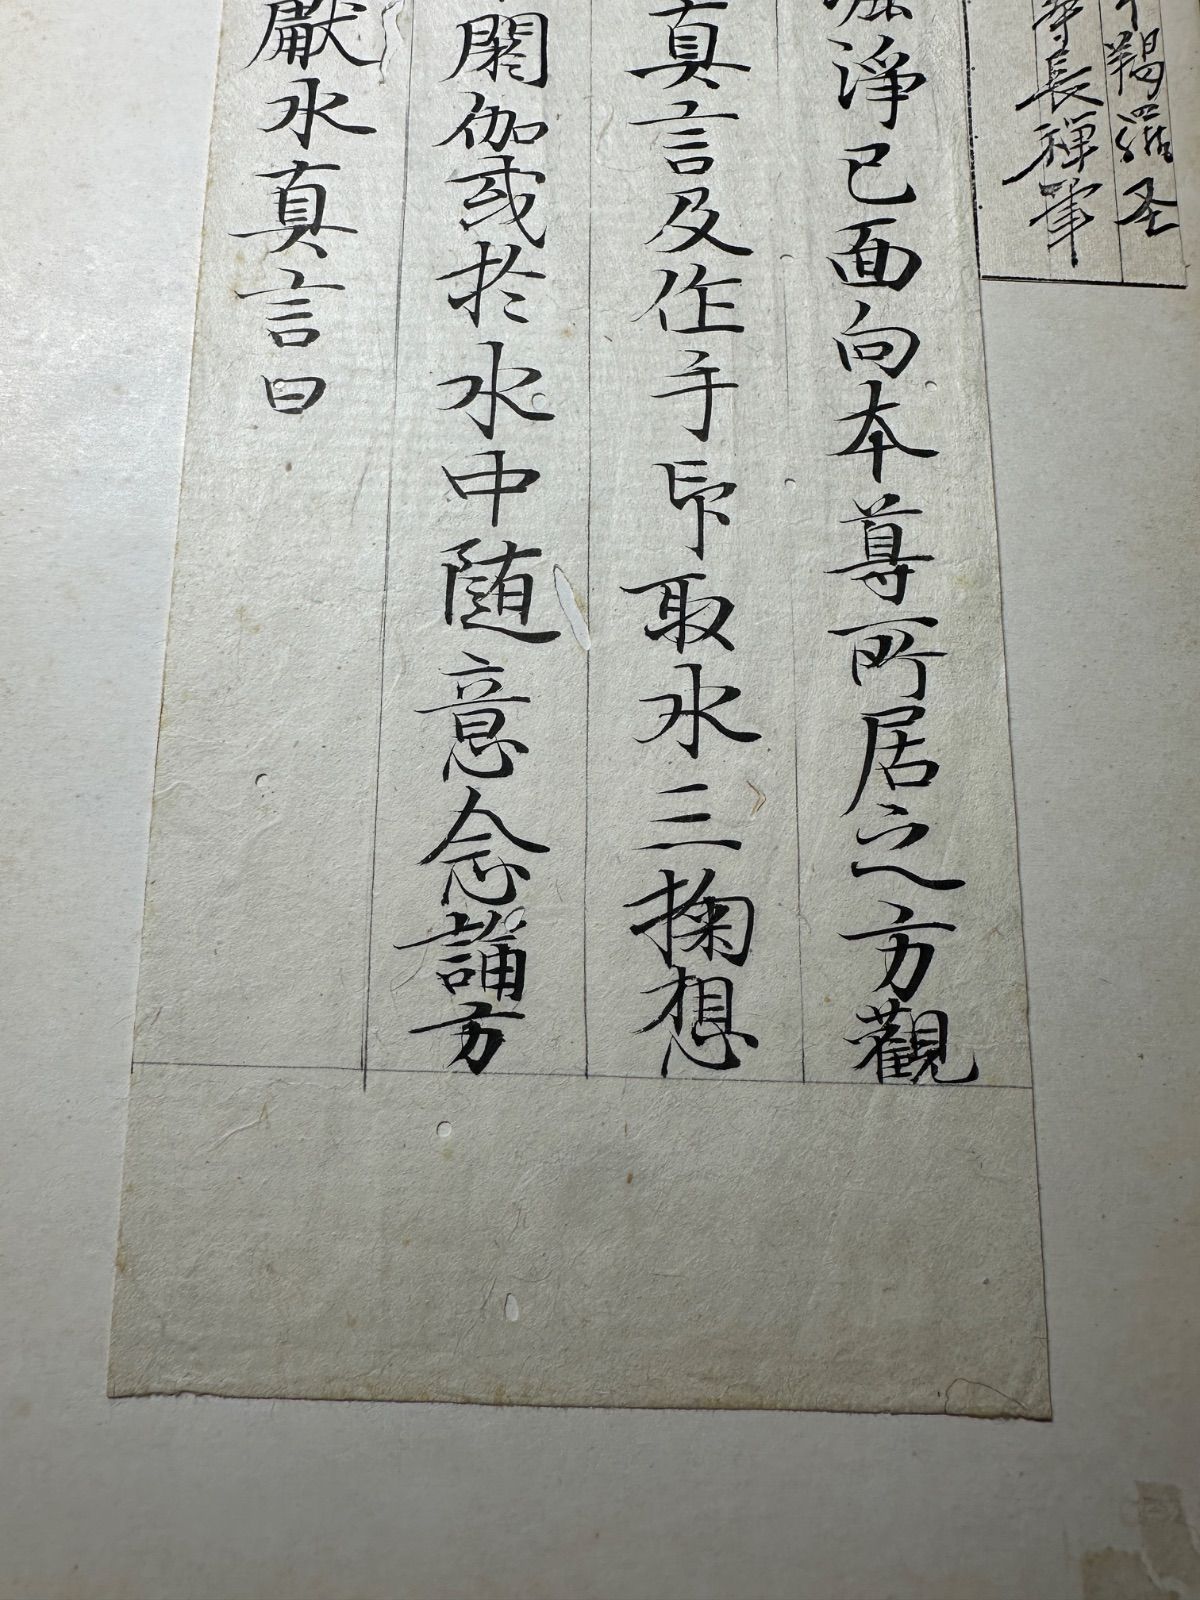 羯羅圣
等長禅筆
淨已面向本尊所居之方觀
真言及作手印取水三掬想
閼伽或於水中随意念誦方
獻水真言曰